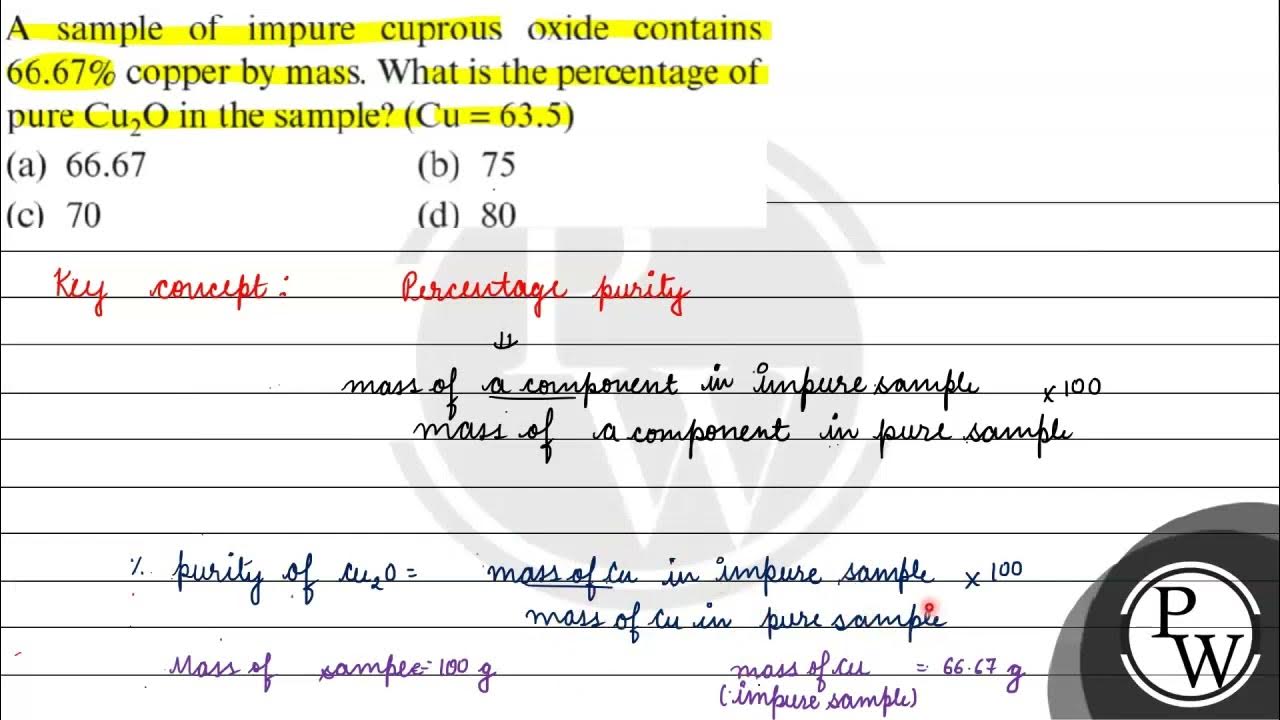 A sample of impure cuprous oxide contains
66.67% copper by mass. What is the percentage of
pure Cu₂O in the sample? (Cu = 63.5)
(a) 66.67 (b) 75
(c) 70 (d) 80
Key concept: Percentage purity
⇓
mass of a component in impure sample × 100
mass of a component in pure sample
% purity of Cu₂O = mass of Cu in impure sample × 100
mass of Cu in pure sample
Mass of sample = 100 g mass of Cu = 66.67 g
(impure sample)
P
W